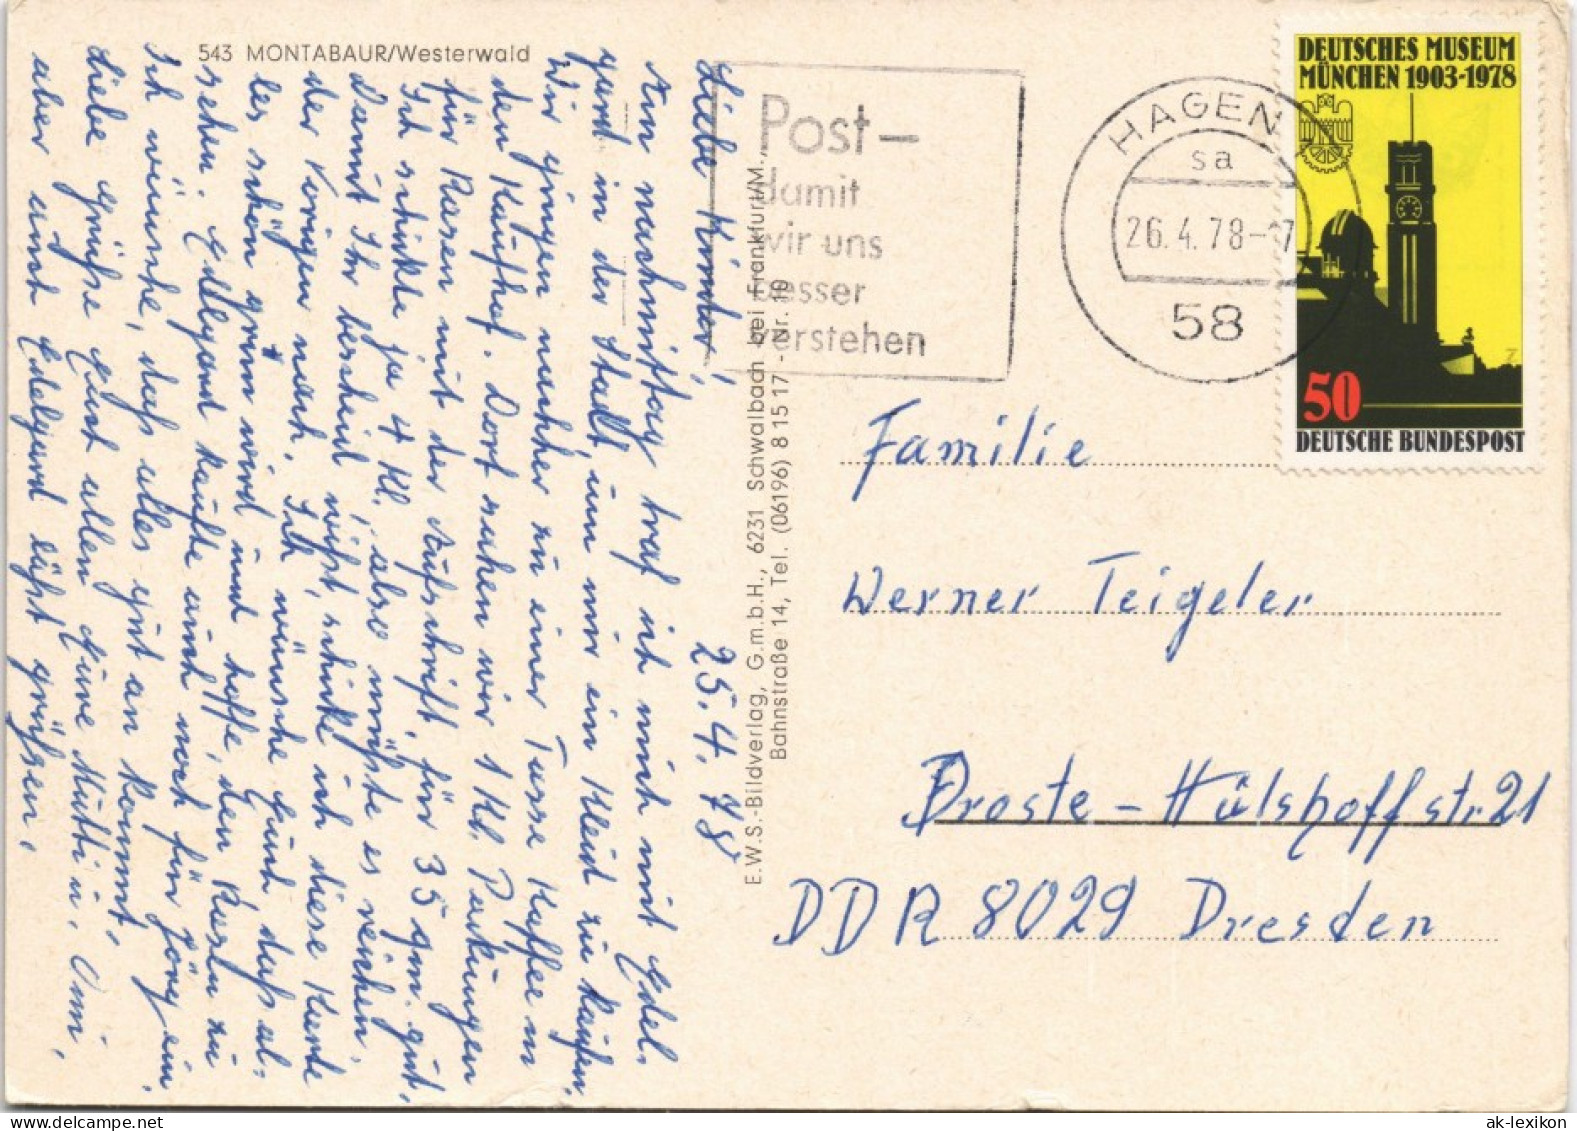 543 MONTABAUR/Westerwald
Liebe Kinder, 25.4.78
Am nachmittag traf ich mich mit Edel-
gard in der Stadt, um mir ein Kleid zu kaufen.
Wir gingen nachher zu einer Tasse Kaffee in
den Kaufhof. Dort sahen wir 1 Kl. Packungen
für Rasen mit der Aufschrift, für 35 qm. gut,
Ich schikte ja 4 Kl., also müßte es reichen.
Damit Ihr bescheid wißt, schike ich diese Karte
der Vorigen nach. Ich wünsche Euch, daß al-
les schön grün wird und hoffe, den Rasen zu
sehen. Edelgard kaufte auch noch für Jörg ein.
Ich wünsche, daß alles gut an kommt,
Liebe grüße Euch allen Eure Mutti u. Omi,
aber auch Edelgard läßt grüßen.
E.W.S.-Bildverlag, G.m.b.H., 6231 Schwalbach bei Frankfurt/M.,
Bahnstraße 14, Tel. (06196) 81517 - Nr. 10
Post-
damit
wir uns
besser
verstehen
HAGEN
sa
26.4.78-17
58
DEUTSCHES MUSEUM
MÜNCHEN 1903-1978
50
DEUTSCHE BUNDESPOST
Familie
Werner Teigeler
Droste-Hülshoffstr. 21
DDR 8029 Dresden
ak-lexikon